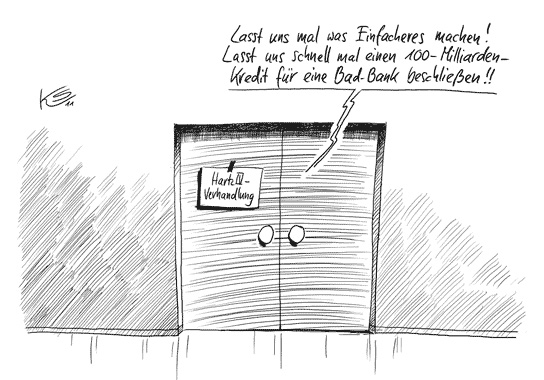 Lasst uns mal was Einfacheres machen!
Lasst uns schnell mal einen 100-Milliarden-
Kredit für eine Bad-Bank beschließen!!
Hartz IV-
Verhandlung